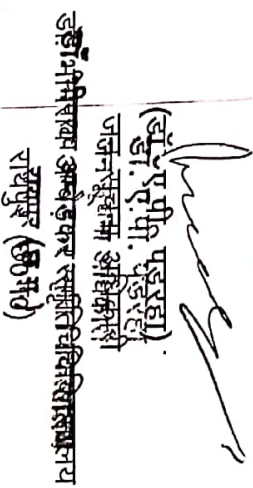 (डॉ. ए.पी. पडरहा)
जनसूचना अधिकारी
डॉ. भीमराव आंबेडकर स्मृति चिकित्सालय
रायपुर (छ.ग.)